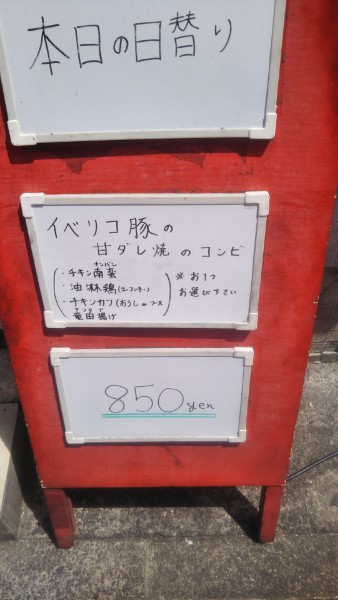 本日の日替り
イベリコ豚の
甘ダレ焼のコンビ
・チキン南蛮
ナンバン
・油林鶏(ユーリンチー)
・チキンカツ(おろしorソース
・竜田揚げ
タツタアゲ
※お1つ
お選び下さい
850yen